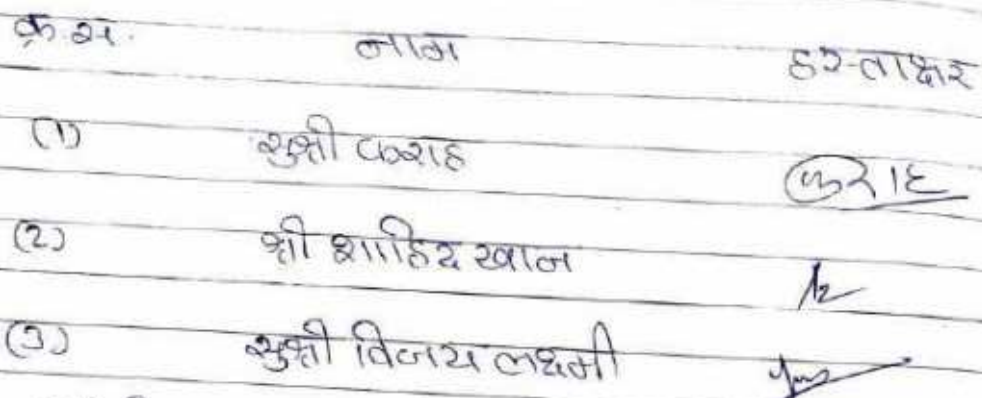 क्र.सं. नाम हस्ताक्षर
(1) सुश्री फराह फराह
(2) श्री शाहिद खान
(3) सुश्री विजय लक्ष्मी